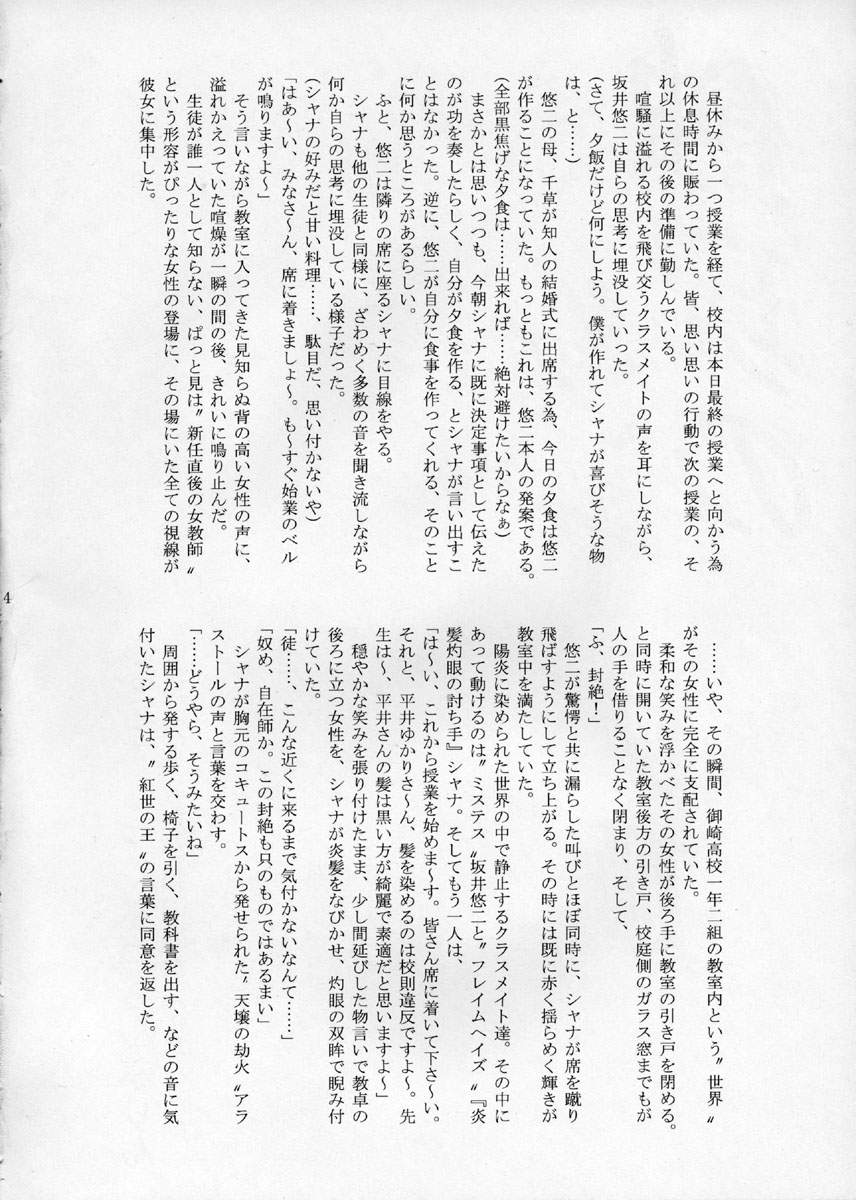 昼休みから一つ授業を経て、校内は本日最終の授業へと向かう為
の休息時間に賑わっていた。皆、思い思いの行動で次の授業の、そ
れ以上にその後の準備に勤しんでいる。
　喧騒に溢れる校内を飛び交うクラスメイトの声を耳にしながら、
坂井悠二は自らの思考に埋没していった。
（さて、夕飯だけど何にしよう。僕が作れてシャナが喜びそうな物
は、と……）
　悠二の母、千草が知人の結婚式に出席する為、今日の夕食は悠二
が作ることになっていた。もっともこれは、悠二本人の発案である。
（全部黒焦げな夕食は……出来れば……絶対避けたいからなぁ）
　まさかとは思いつつも、今朝シャナに既に決定事項として伝えた
のが功を奏したらしく、自分が夕食を作る、とシャナが言い出すこ
とはなかった。逆に、悠二が自分に食事を作ってくれる、そのこと
に何か思うところがあるらしい。
　ふと、悠二は隣りの席に座るシャナに目線をやる。
　シャナも他の生徒と同様に、ざわめく多数の音を聞き流しながら
何か自らの思考に埋没している様子だった。
（シャナの好みだと甘い料理……、駄目だ、思い付かないや）
「はあ～い、みなさ～ん、席に着きましょ～。も～すぐ始業のベル
が鳴りますよ～」
　そう言いながら教室に入ってきた見知らぬ背の高い女性の声に、
溢れかえっていた喧燥が一瞬の間の後、きれいに鳴り止んだ。
　生徒が誰一人として知らない、ぱっと見は〝新任直後の女教師〟
という形容がぴったりな女性の登場に、その場にいた全ての視線が
彼女に集中した。
　……いや、その瞬間、御崎高校一年二組の教室内という〝世界〟
がその女性に完全に支配されていた。
　柔和な笑みを浮かべたその女性が後ろ手に教室の引き戸を閉める。
と同時に開いていた教室後方の引き戸、校庭側のガラス窓までもが
人の手を借りることなく閉まり、そして、
「ふ、封絶！」
　悠二が驚愕と共に漏らした叫びとほぼ同時に、シャナが席を蹴り
飛ばすようにして立ち上がる。その時には既に赤く揺らめく輝きが
教室中を満たしていた。
　陽炎に染められた世界の中で静止するクラスメイト達。その中に
あって動けるのは〝ミステス〟坂井悠二と〝フレイムヘイズ〟『炎
髪灼眼の討ち手』シャナ。そしてもう一人は、
「は～い、これから授業を始めま～す。皆さん席に着いて下さ～い。
それと、平井ゆかりさ～ん、髪を染めるのは校則違反ですよ～。先
生は～、平井さんの髪は黒い方が綺麗で素適だと思いますよ～」
　穏やかな笑みを張り付けたまま、少し間延びした物言いで教卓の
後ろに立つ女性を、シャナが炎髪をなびかせ、灼眼の双眸で睨み付
けていた。
「徒……、こんな近くに来るまで気付かないなんて……」
「奴め、自在師か。この封絶も只のものではあるまい」
　シャナが胸元のコキュートスから発せられた〝天壌の劫火〟アラ
ストールの声と言葉を交わす。
「……どうやら、そうみたいね」
　周囲から発する歩く、椅子を引く、教科書を出す、などの音に気
付いたシャナは、〝紅世の王〟の言葉に同意を返した。
4